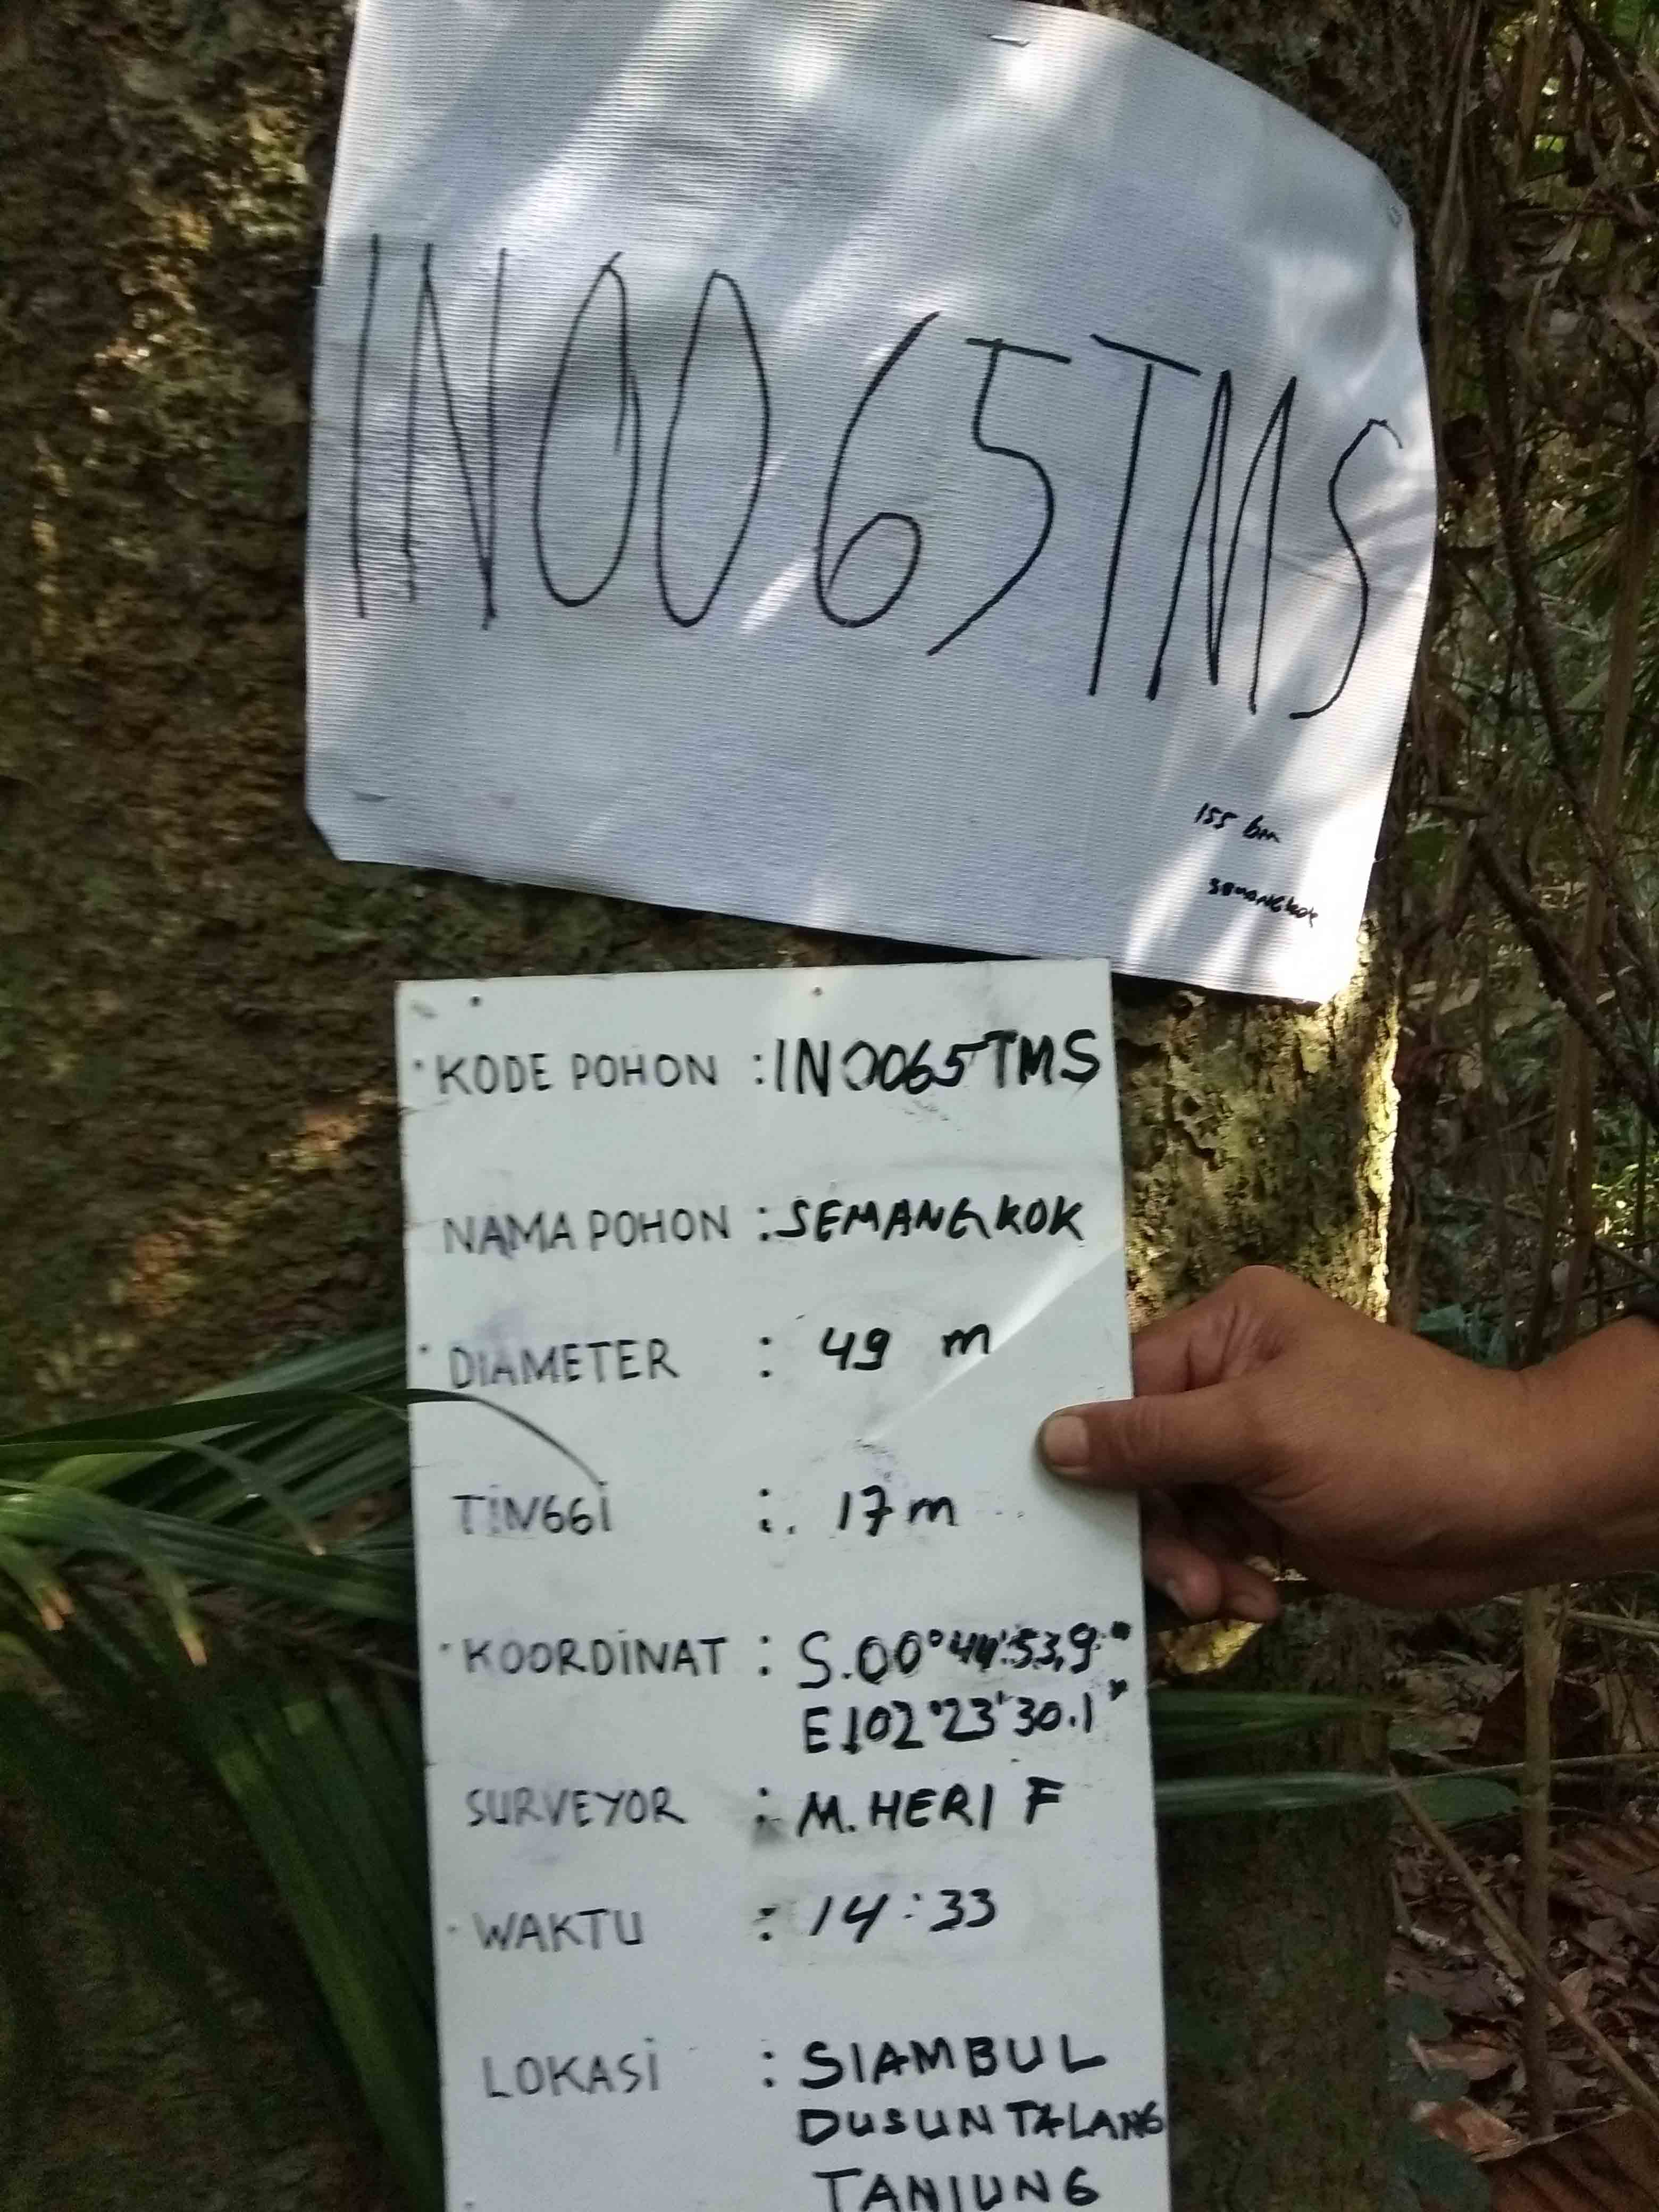 IN0065TMS
155 bm
SEMANGkok
KODE POHON : IN0065TMS
NAMA POHON : SEMANGKOK
DIAMETER : 49 m
TINGGI : 17 m
KOORDINAT : S.00°44'53,9"
E102°23'30.1"
SURVEYOR : M. HERI F
WAKTU : 14:33
LOKASI : SIAMBUL
DUSUN TALANG
TANJUNG